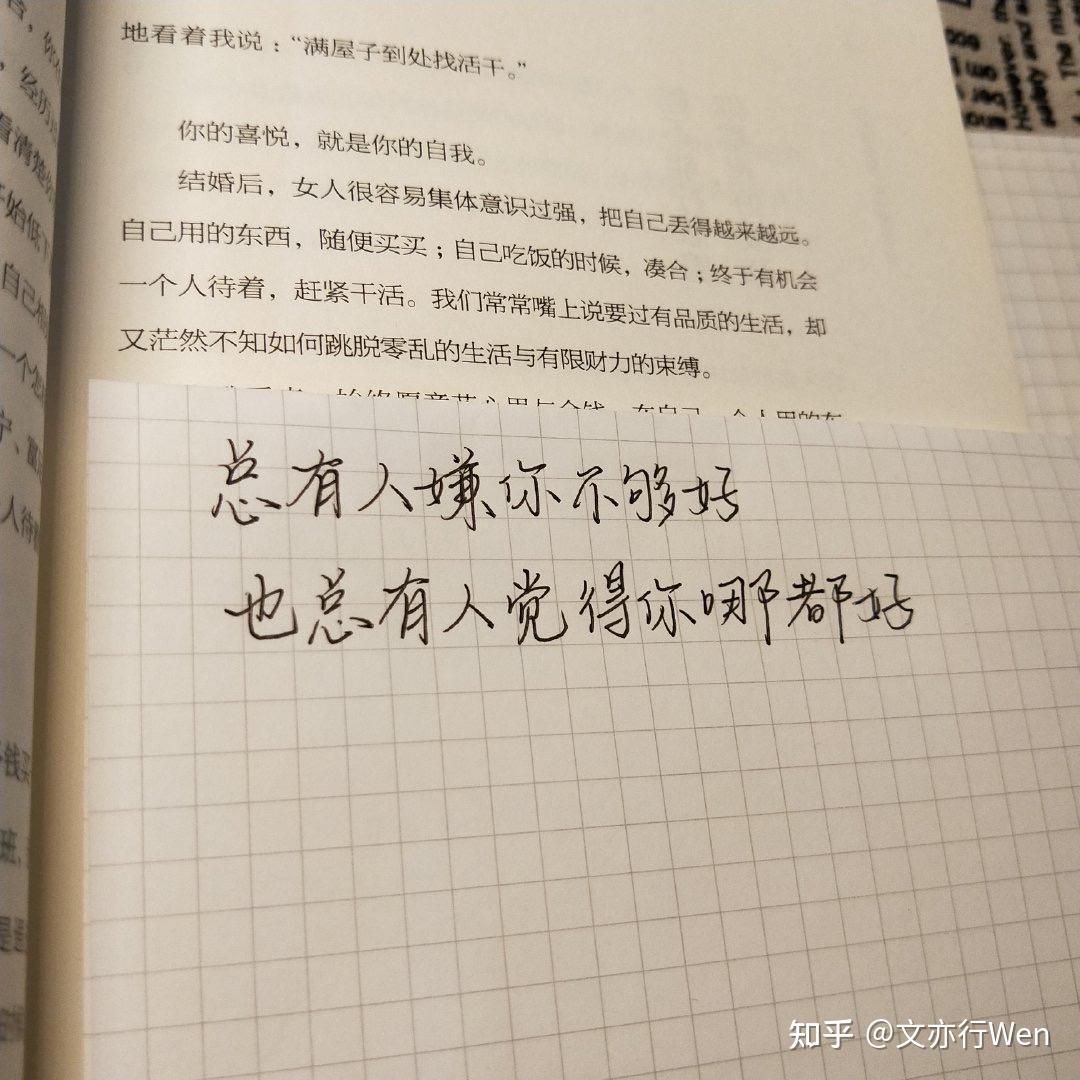 地看着我说：“满屋子到处找活干。”
你的喜悦，就是你的自我。
结婚后，女人很容易集体意识过强，把自己丢得越来越远。
自己用的东西，随便买买；自己吃饭的时候，凑合；终于有机会
一个人待着，赶紧干活。我们常常嘴上说要过有品质的生活，却
又茫然不知如何跳脱零乱的生活与有限财力的束缚。
总有人嫌你不够好
也总有人觉得你哪都好
经历
看清楚
开始低下
自己
一个怎
人待
钱买
班，
However, th
safety and
The mus
知乎 @文亦行Wen